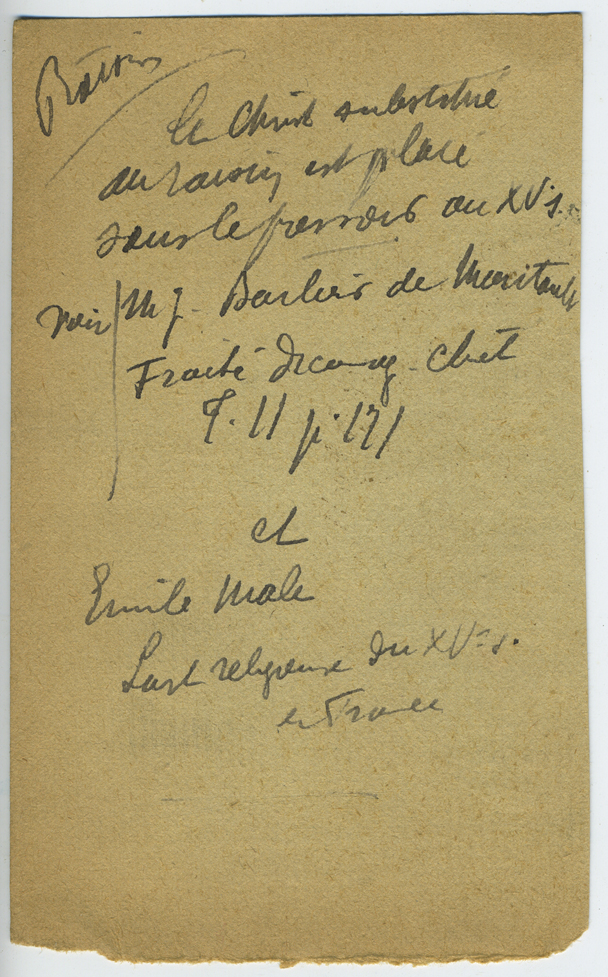 Raisin
le Christ substitué
au raisin est placé
sous le pressoir au XVe s.
voir M J. Barbier de Montault
Traité d'iconog. chrét
T. II p. 171
et
Emile Male
L'art religieux du XVe s.
en France